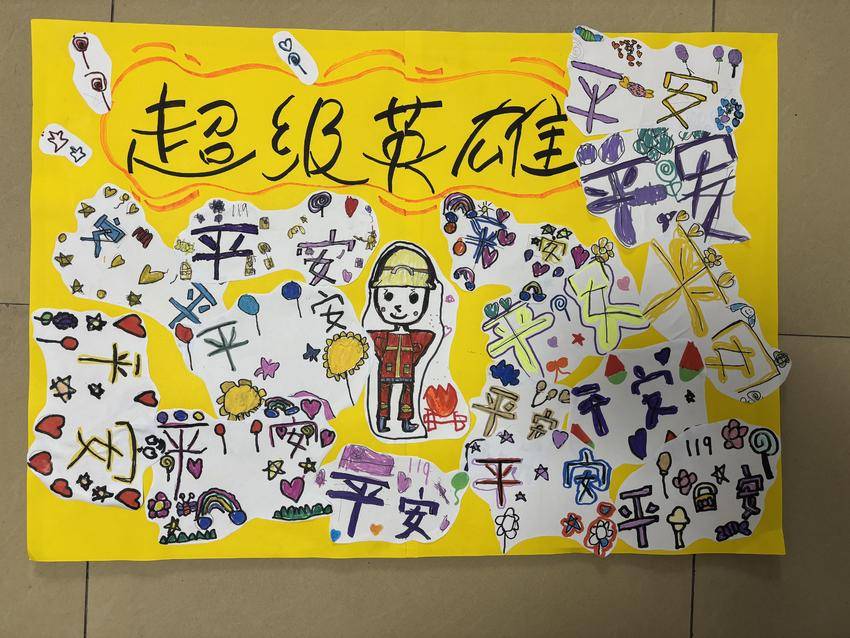 超级英雄
平安
平安
平安
119
平安
平安
平安
平安
平安
平安
平安
平安
平安
平安
119
平安
平安
119
平安